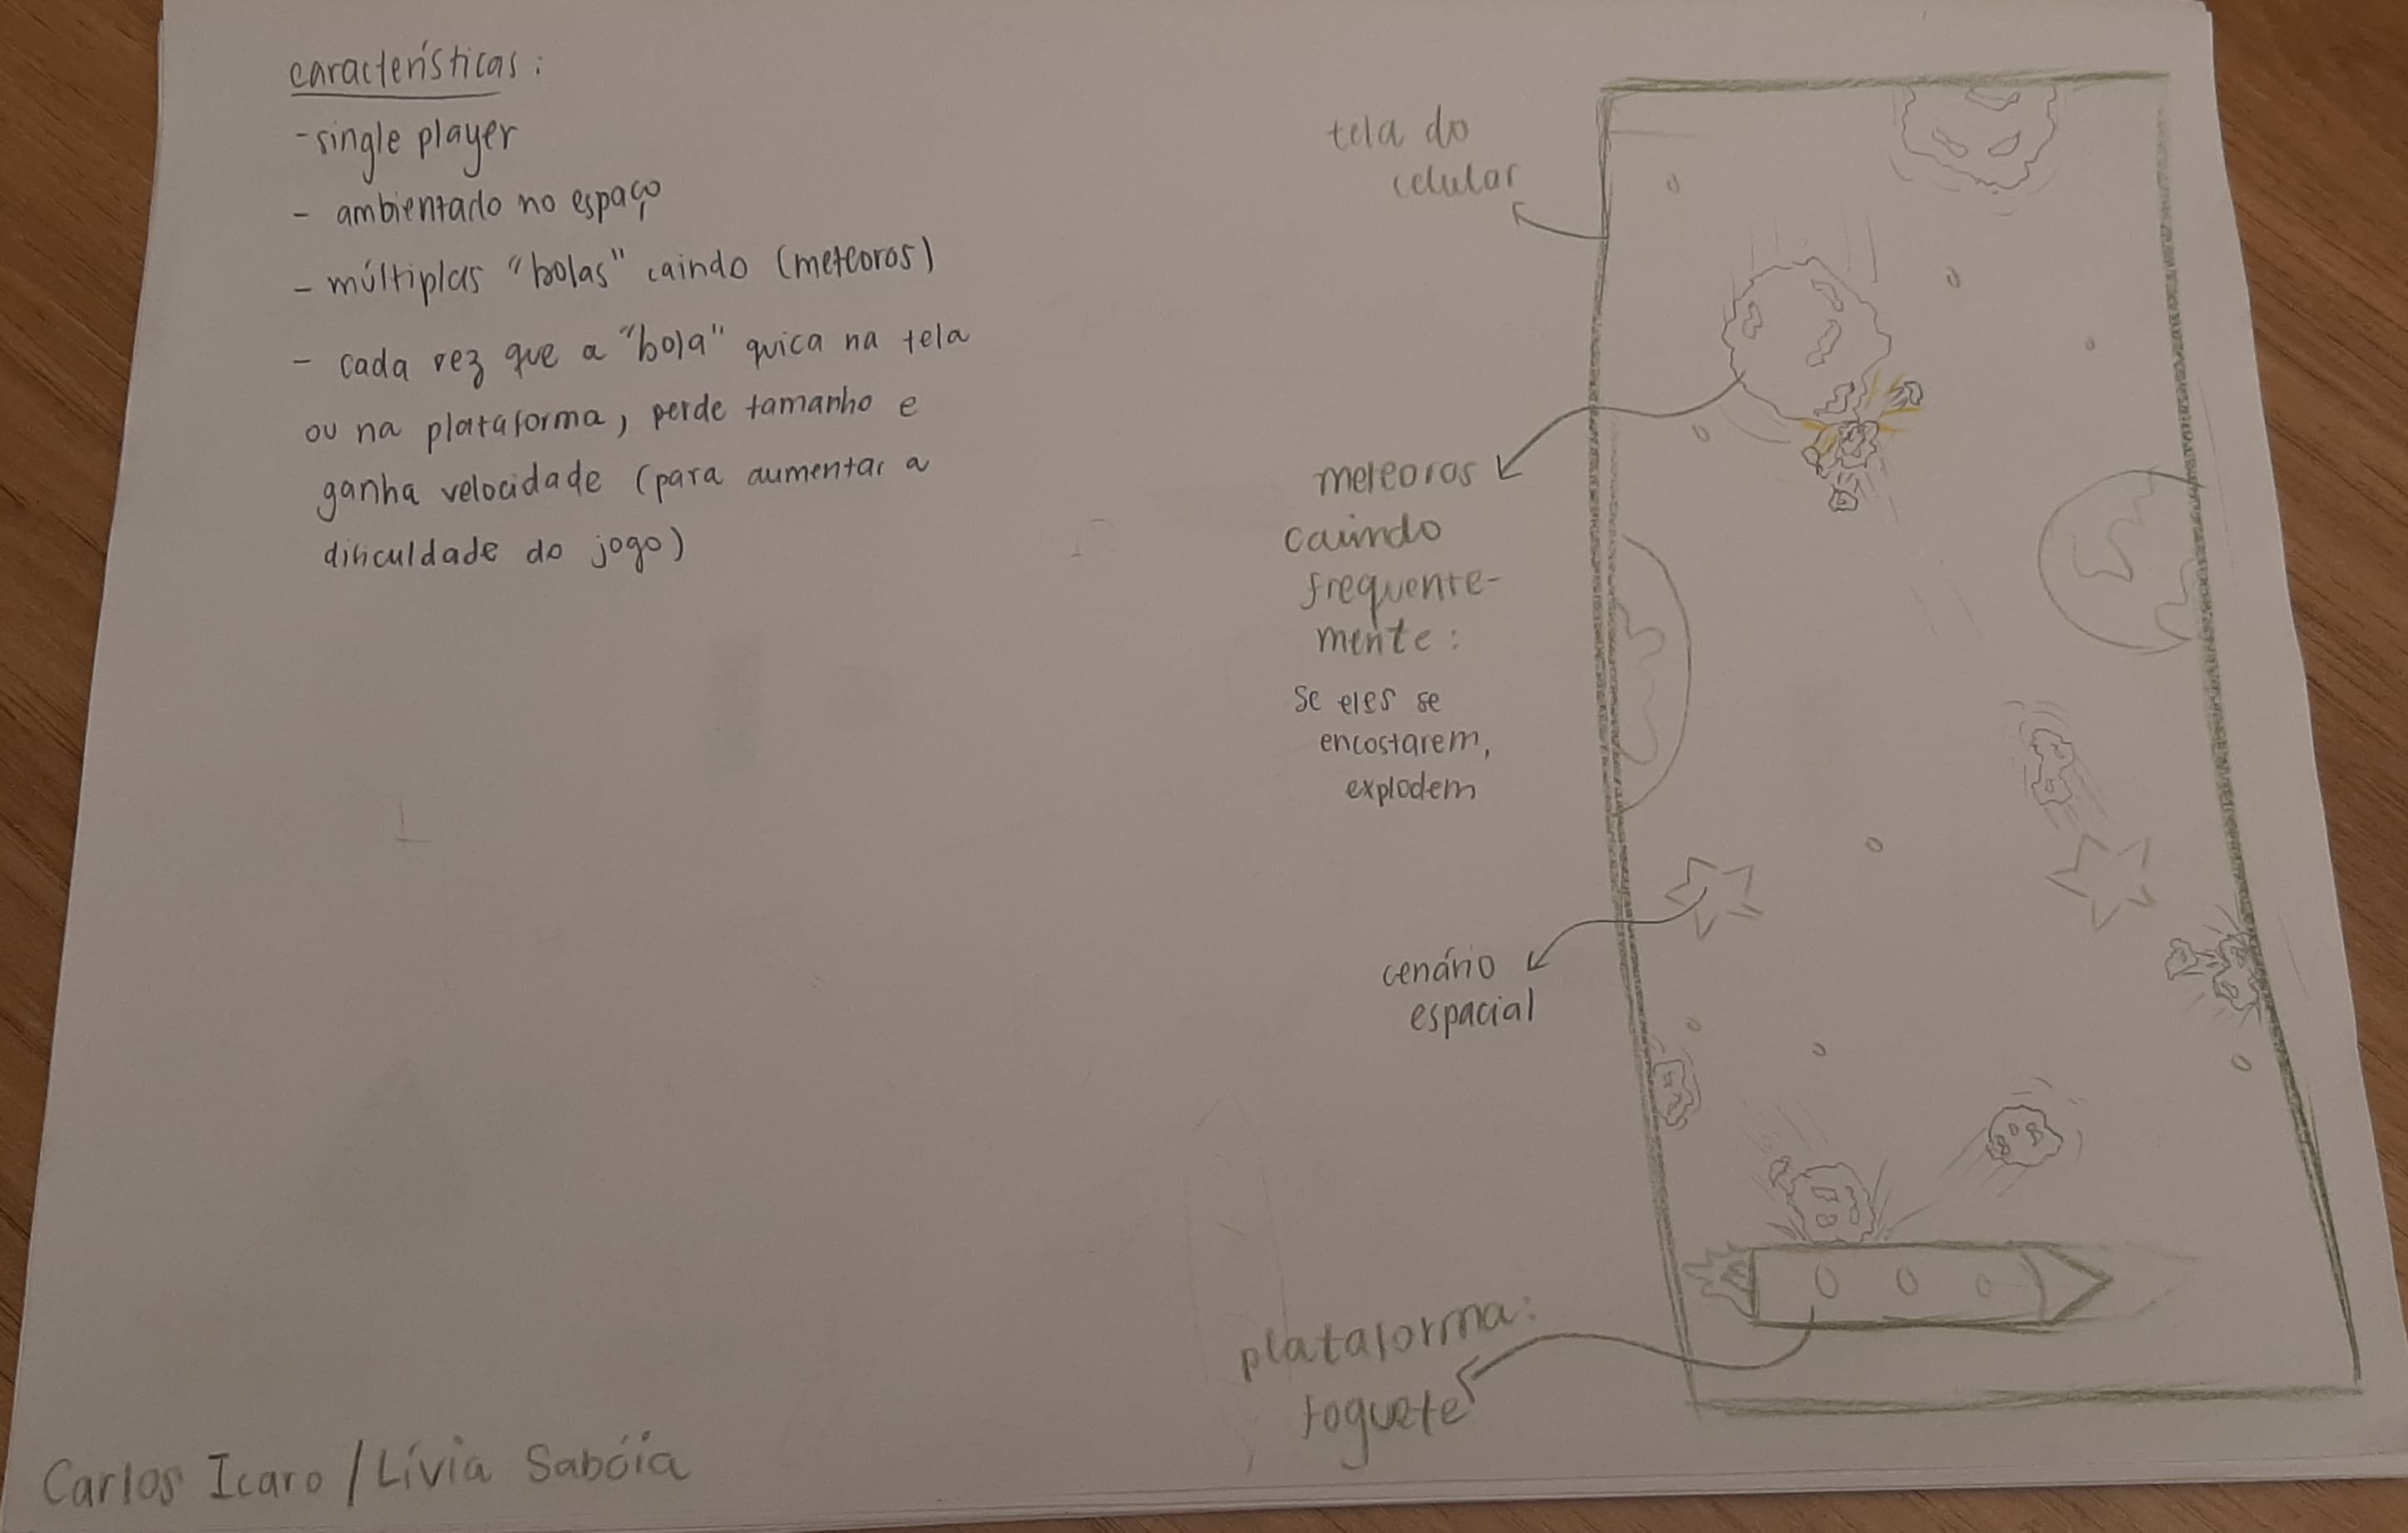 características:
- single player
- ambientado no espaço
- múltiplas "bolas" caindo (meteoros)
- cada vez que a "bola" quica na tela
ou na plataforma, perde tamanho e
ganha velocidade (para aumentar a
dificuldade do jogo)
tela do
celular
meteoros
caindo
frequente-
mente:
se eles se
encostarem,
explodem
cenário
espacial
plataforma:
foguete
Carlos Icaro / Lívia Sabóia